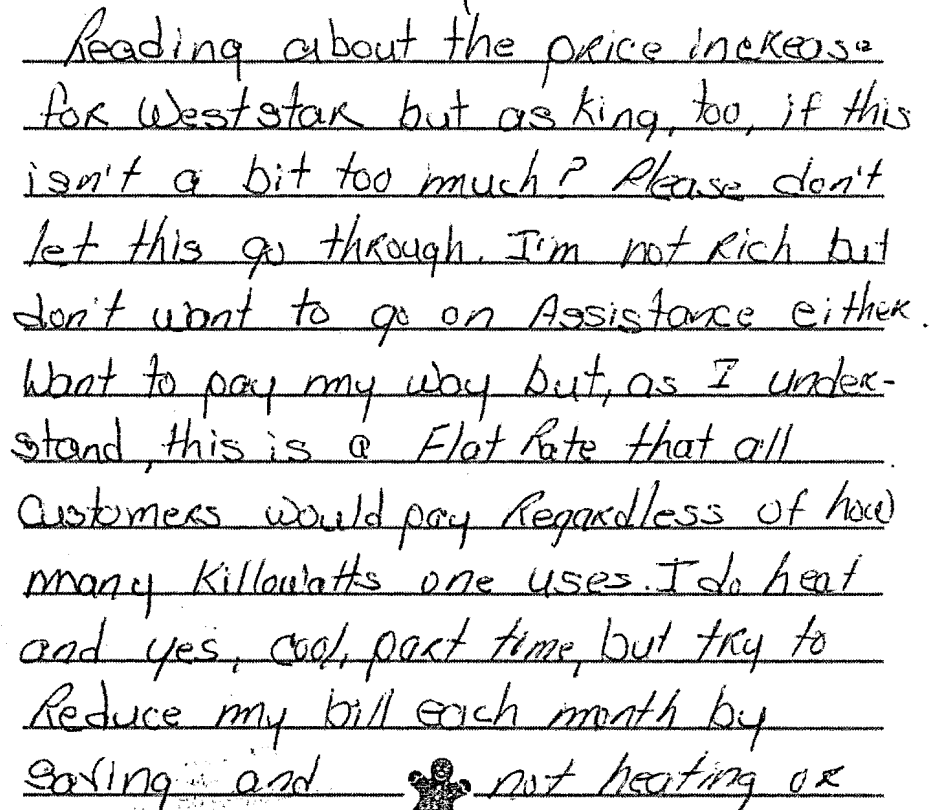 Reading about the price increase
for Weststar but asking, too, if this
isn't a bit too much? Please don't
let this go through. I'm not Rich but
don't want to go on Assistance either.
Want to pay my way but, as I under-
stand, this is a Flat Rate that all
Customers would pay Regardless of how
many Killowatts one uses. I do heat
and yes, cool, part time, but try to
Reduce my bill each month by
saving and not heating or